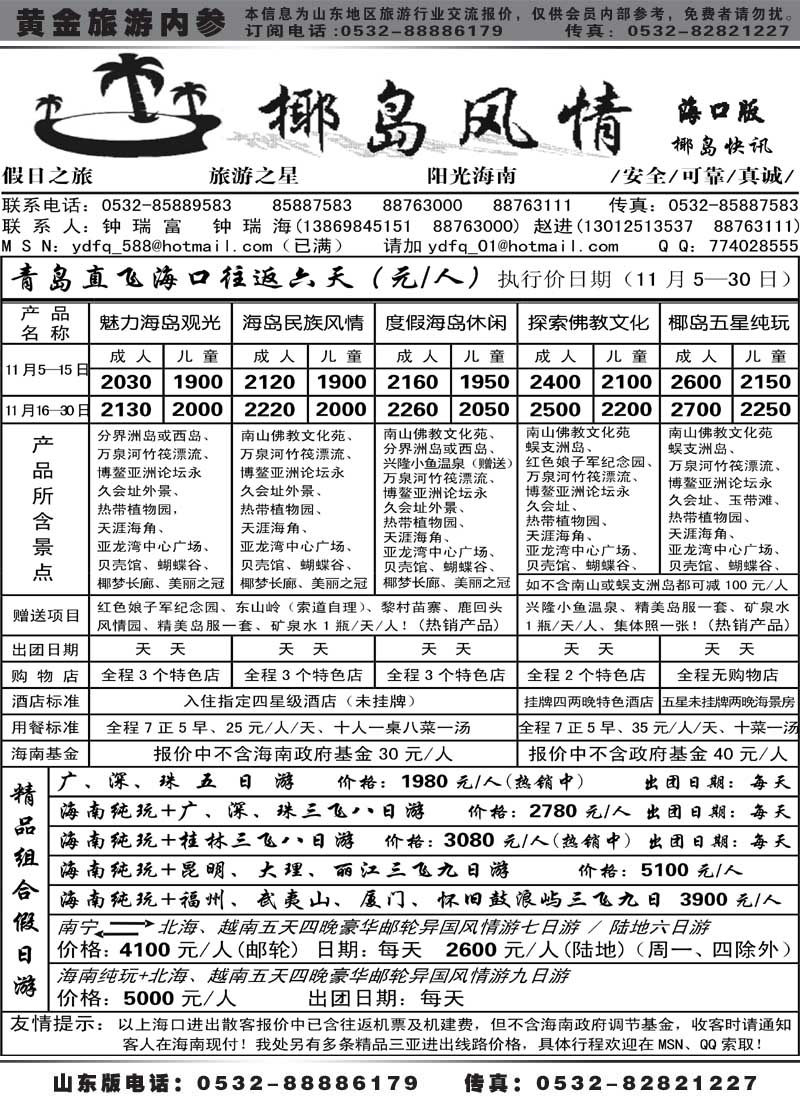 黄金旅游内参
本信息为山东地区旅游行业交流报价，仅供会员内部参考，免费者请勿扰。
订阅电话:0532-88886179 传真: 0532-82821227
椰岛风情
海口版
椰岛快讯
假日之旅 旅游之星 阳光海南 /安全/可靠/真诚/
联系电话: 0532-85889583 85887583 88763000 88763111 传真: 0532-85887583
联系人: 钟瑞富 钟瑞海(13869845151 88763000) 赵进(13012513537 88763111)
MSN: ydfq_588@hotmail.com（已满） 请加 ydfq_01@hotmail.com QQ: 774028555
青岛直飞海口往返六天（元/人）执行价日期（11月5—30日）
产品名称 魅力海岛观光 海岛民族风情 度假海岛休闲 探索佛教文化 椰岛五星纯玩
成人 儿童 成人 儿童 成人 儿童 成人 儿童 成人 儿童
11月5—15日 2030 1900 2120 1900 2160 1950 2400 2100 2600 2150
11月16—30日 2130 2000 2220 2000 2260 2050 2500 2200 2700 2250
产品所含景点
分界洲岛或西岛、
万泉河竹筏漂流、
博鳌亚洲论坛永
久会址外景、
热带植物园，
天涯海角、
亚龙湾中心广场、
贝壳馆、蝴蝶谷、
椰梦长廊、美丽之冠
南山佛教文化苑、
万泉河竹筏漂流、
博鳌亚洲论坛永
久会址外景、
热带植物园、
天涯海角、
亚龙湾中心广场、
贝壳馆、蝴蝶谷、
椰梦长廊、美丽之冠
南山佛教文化苑、
分界洲岛或西岛、
兴隆小鱼温泉（赠送）
万泉河竹筏漂流、
博鳌亚洲论坛永
久会址外景、
热带植物园、
天涯海角、
亚龙湾中心广场、
贝壳馆、蝴蝶谷、
椰梦长廊、美丽之冠
南山佛教文化苑
蜈支洲岛、
红色娘子军纪念园、
万泉河竹筏漂流、
博鳌亚洲论坛永
久会址、
热带植物园、
天涯海角、
亚龙湾中心广场、
贝壳馆、蝴蝶谷、
南山佛教文化苑
蜈支洲岛、
万泉河竹筏漂流、
博鳌亚洲论坛永
久会址、玉带滩、
热带植物园、
天涯海角、
亚龙湾中心广场、
贝壳馆、蝴蝶谷、
如不含南山或蜈支洲岛都可减100元/人
赠送项目
红色娘子军纪念园、东山岭（索道自理）、黎村苗寨、鹿回头
风情园、精美岛服一套、矿泉水1瓶/天/人!（热销产品）
兴隆小鱼温泉、精美岛服一套、矿泉水
1瓶/天/人、集体照一张!（热销产品）
出团日期 天天 天天 天天 天天 天天
购物店 全程3个特色店 全程3个特色店 全程3个特色店 全程2个特色店 全程无购物店
酒店标准 入住指定四星级酒店（未挂牌） 挂牌四两晚特色酒店 五星未挂牌两晚海景房
用餐标准 全程7正5早、25元/人/天、十人一桌八菜一汤 全程7正5早、35元/人/天、十菜一汤
海南基金 报价中不含海南政府基金30元/人 报价中不含政府基金40元/人
精品组合假日游
广、深、珠五日游 价格: 1980元/人(热销中) 出团日期: 每天
海南纯玩+广、深、珠三飞八日游 价格: 2780元/人 出团日期: 每天
海南纯玩+桂林三飞八日游 价格: 3080元/人(热销中) 出团日期: 每天
海南纯玩+昆明、大理、丽江三飞九日游 价格: 5100元/人
海南纯玩+福州、武夷山、厦门、怀旧鼓浪屿三飞九日 3900元/人
南宁 北海、越南五天四晚豪华邮轮异国风情游七日游 / 陆地六日游
价格: 4100元/人(邮轮) 日期: 每天 2600元/人(陆地)（周一、四除外）
海南纯玩+北海、越南五天四晚豪华邮轮异国风情游九日游
价格: 5000元/人 出团日期: 每天
友情提示: 以上海口进出散客报价中已含往返机票及机建费，但不含海南政府调节基金，收客时请通知
客人在海南现付! 我处另有多条精品三亚进出线路价格，具体行程欢迎在MSN、QQ索取!
山东版电话: 0532-88886179 传真: 0532-82821227